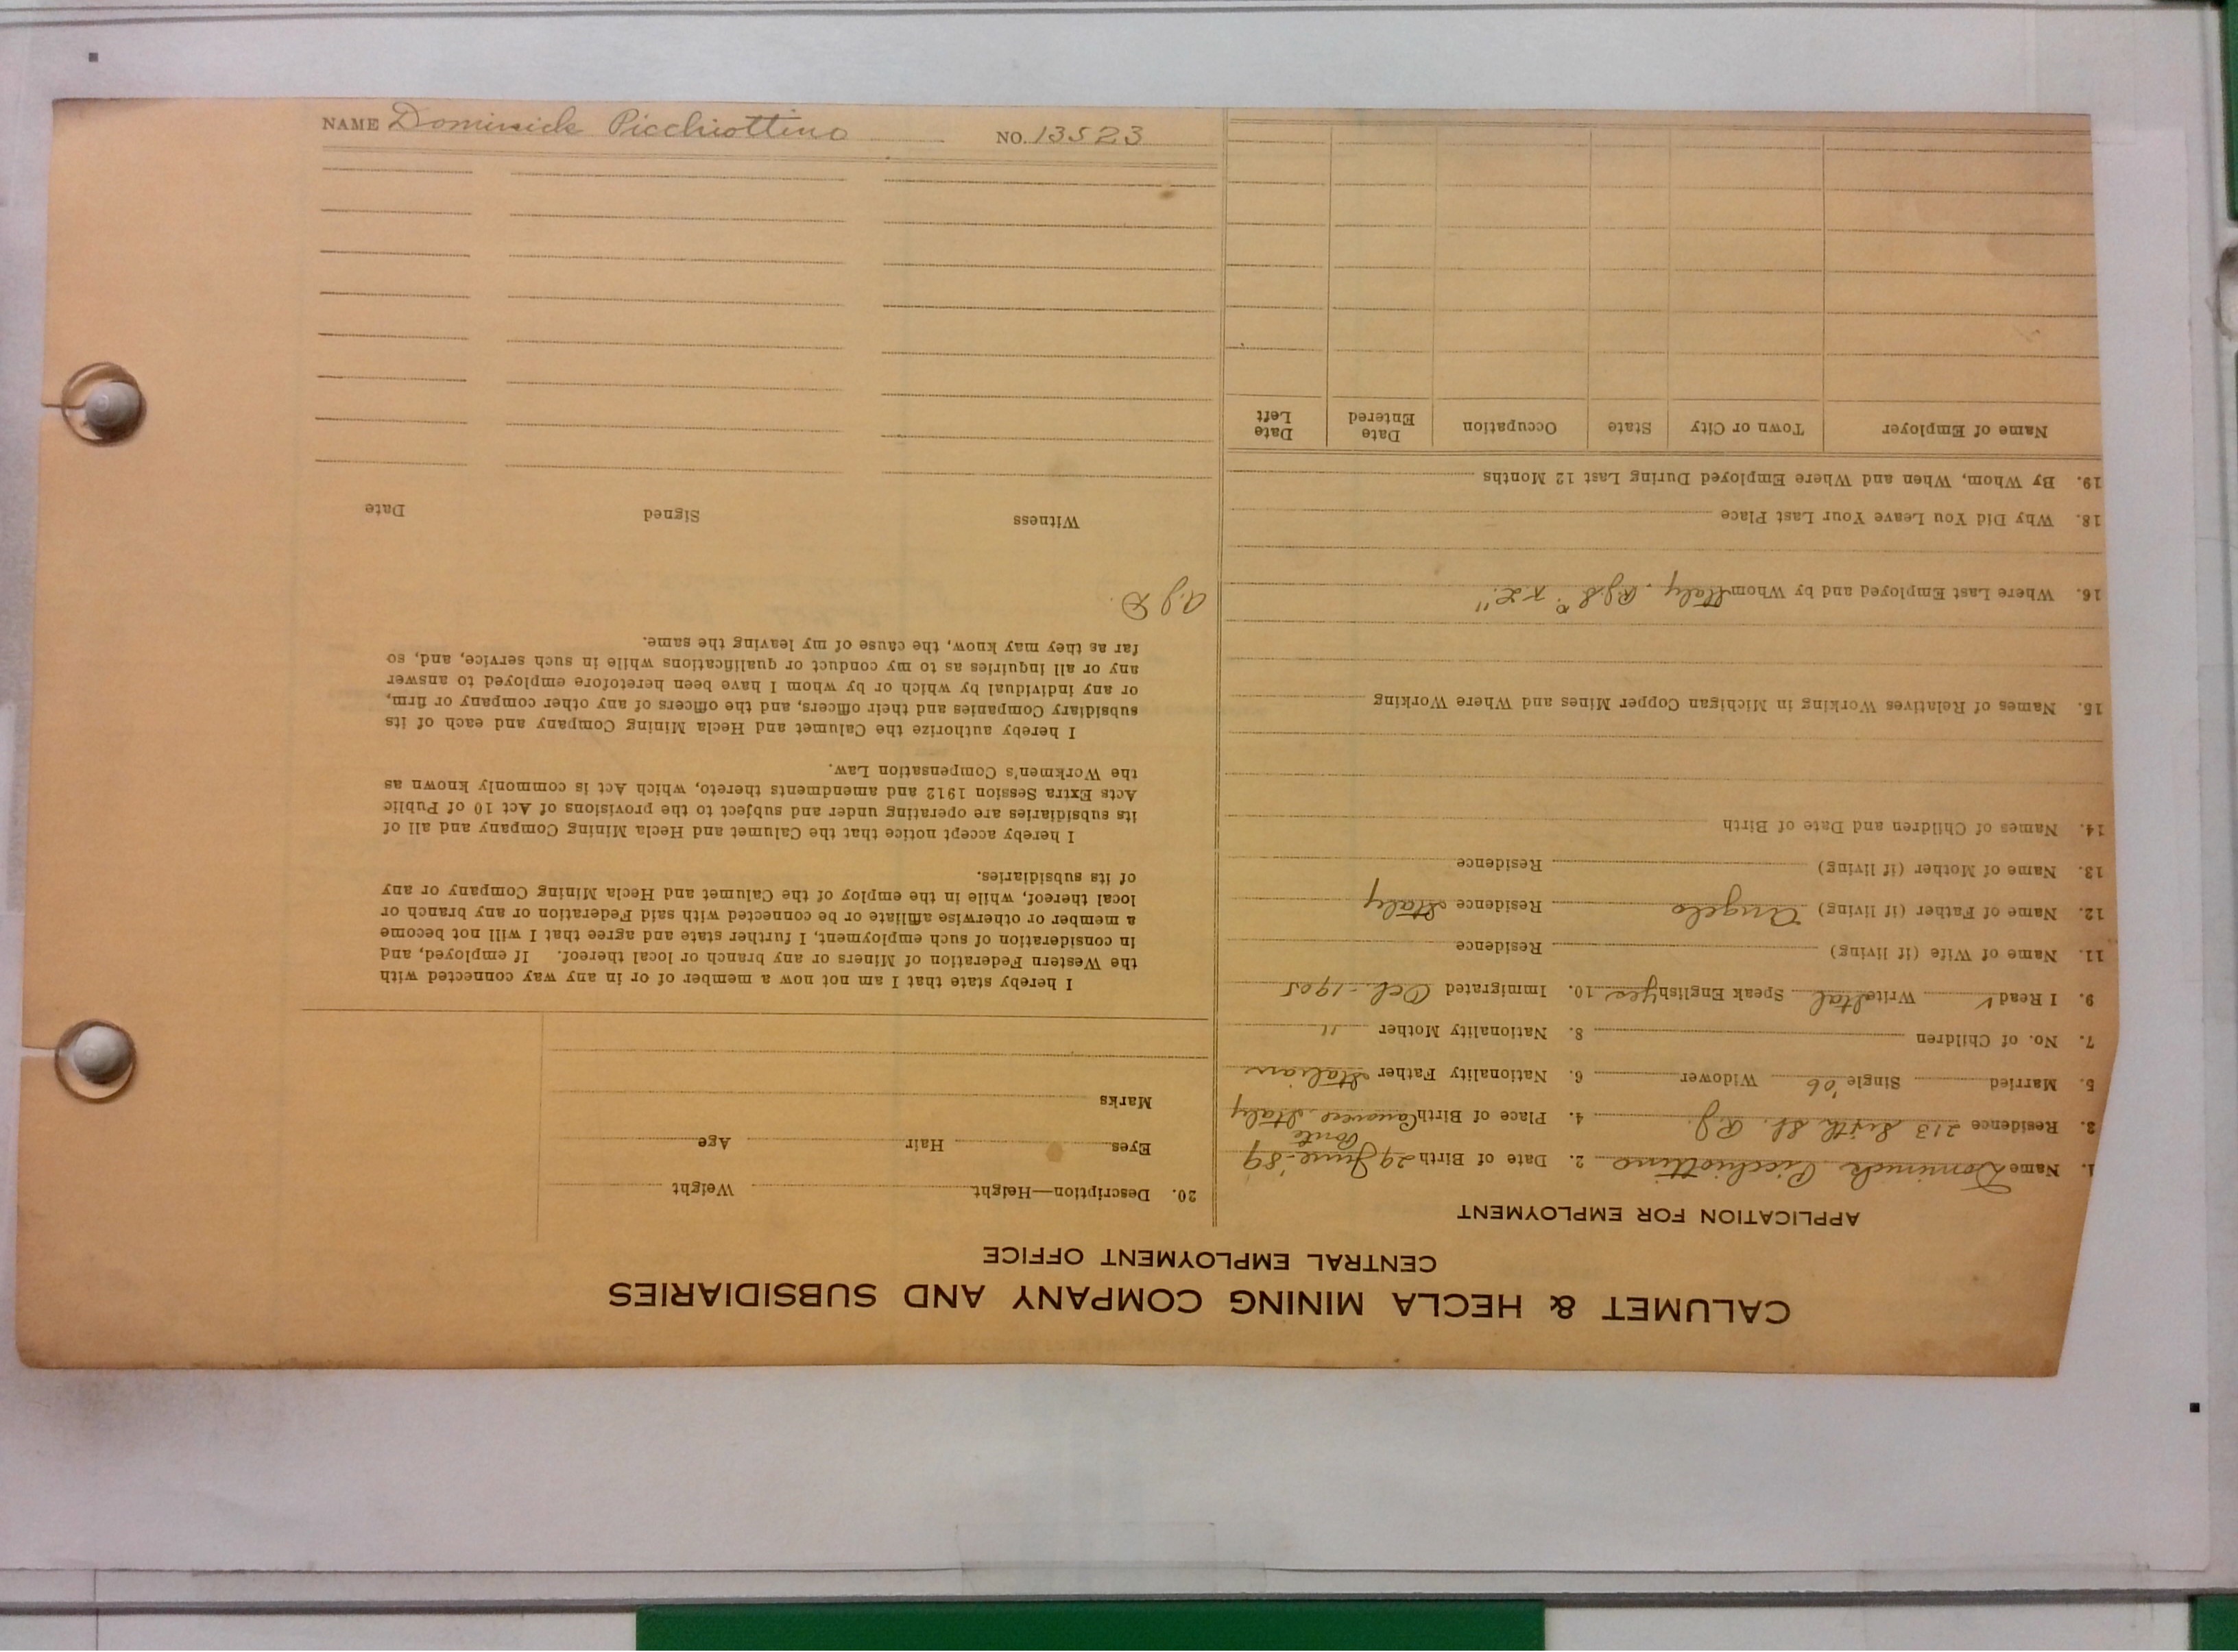 NAME Dominick Picchiottino NO. 13523
CALUMET & HECLA MINING COMPANY AND SUBSIDIARIES
CENTRAL EMPLOYMENT OFFICE
APPLICATION FOR EMPLOYMENT
1. Name Dominick Picchiottino 2. Date of Birth 29 June - '89
3. Residence 213 Sixth St. R.J. 4. Place of Birth Canavese Italy
Ponte
5. Married Single '06 Widower 6. Nationality Father Italian
7. No. of Children 8. Nationality Mother "
9. I Read ✓ Write Ital Speak English yes 10. Immigrated Oct. - 1905
11. Name of Wife (if living) Residence
12. Name of Father (if living) Angelo Residence Italy
13. Name of Mother (if living) Residence
14. Names of Children and Date of Birth
15. Names of Relatives Working in Michigan Copper Mines and Where Working
16. Where Last Employed and by Whom Italy.
18. Why Did You Leave Your Last Place
19. By Whom, When and Where Employed During Last 12 Months
Name of Employer Town or City State Occupation Date Entered Date Left
20. Description—Height Weight
Eyes Hair Age
Marks
I hereby state that I am not now a member of or in any way connected with
the Western Federation of Miners or any branch or local thereof. If employed, and
in consideration of such employment, I further state and agree that I will not become
a member or otherwise affiliate or be connected with said Federation or any branch or
local thereof, while in the employ of the Calumet and Hecla Mining Company or any
of its subsidiaries.
I hereby accept notice that the Calumet and Hecla Mining Company and all of
its subsidiaries are operating under and subject to the provisions of Act 10 of Public
Acts Extra Session 1912 and amendments thereto, which Act is commonly known as
the Workmen's Compensation Law.
I hereby authorize the Calumet and Hecla Mining Company and each of its
subsidiary Companies and their officers, and the officers of any other company or firm,
or any individual by which or by whom I have been heretofore employed to answer
any or all inquiries as to my conduct or qualifications while in such service, and, so
far as they may know, the cause of my leaving the same.
a.g.D.
Witness Signed Date